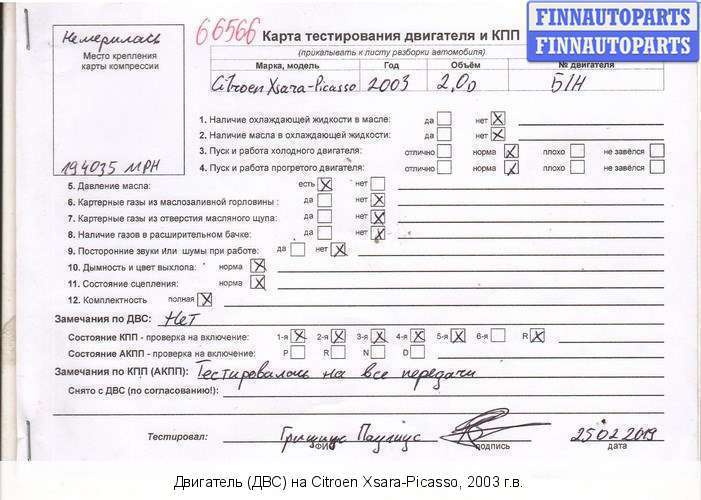 FINNAUTOPARTS
FINNAUTOPARTS
Не мерилась
Место крепления
карты компрессии
194035 МРН
66566 Карта тестирования двигателя и КПП
(прикалывать к листу разборки автомобиля)
Марка, модель Год Объём № двигателя
Citroen Xsara-Picasso 2003 2,0D 51H
1. Наличие охлаждающей жидкости в масле: да нет X
2. Наличие масла в охлаждающей жидкости: да нет X
3. Пуск и работа холодного двигателя: отлично норма X плохо не завёлся
4. Пуск и работа прогретого двигателя: отлично норма X плохо не завёлся
5. Давление масла: есть X нет
6. Картерные газы из маслозаливной горловины : да нет X
7. Картерные газы из отверстия масляного щупа: да нет X
8. Наличие газов в расширительном бачке: да нет X
9. Посторонние звуки или шумы при работе: да нет X
10. Дымность и цвет выхлопа: норма X
11. Состояние сцепления: норма X
12. Комплектность полная X
Замечания по ДВС: Нет
Состояние КПП - проверка на включение: 1-я X 2-я X 3-я X 4-я X 5-я X 6-я R X
Состояние АКПП - проверка на включение: P R N D
Замечания по КПП (АКПП): Тестировалась на все передачи
Снято с ДВС (по согласованию!):
Тестировал: 25 02 2019
ФИО подпись дата
Двигатель (ДВС) на Citroen Xsara-Picasso, 2003 г.в.